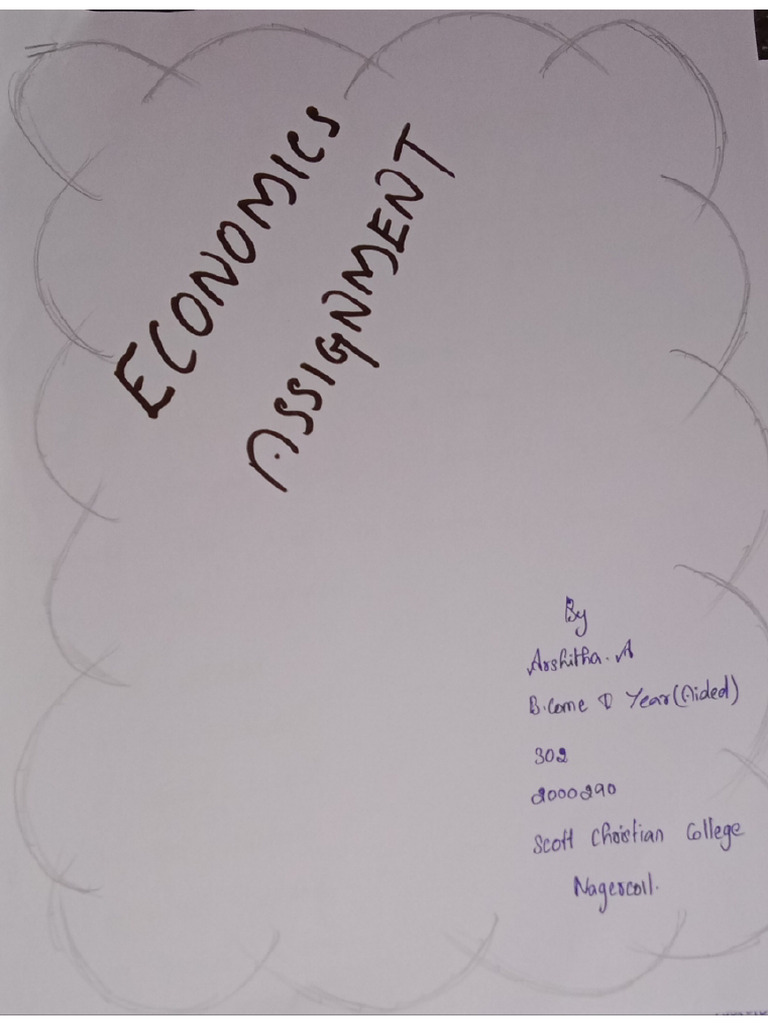 ECONOMICS
ASSIGNMENT
By
Arshitha. A
B.Come I Year (Aided)
302
2000290
Scott Christian College
Nagercoil.